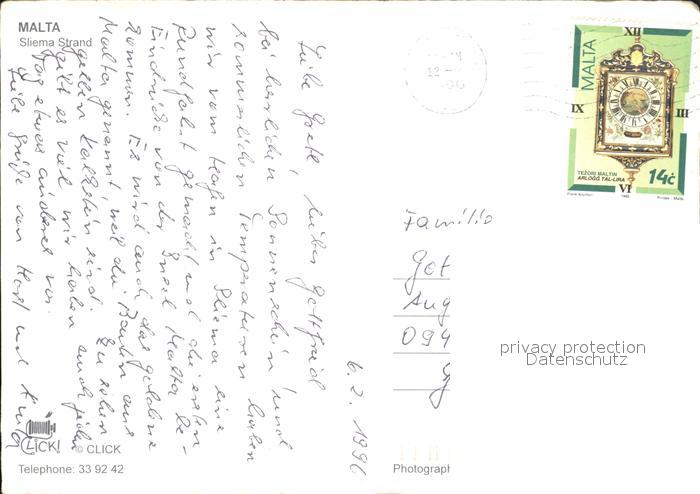 MALTA
Sliema Strand
Liebe Grete, lieber Gottfried
bei herrlichen Sonnenschein und
sommerlichen Temperaturen haben
wir vom Hafen in Sliema eine
Rundfahrt gemacht und die ersten
Eindrücke von der Insel Malta be-
kommen. Es wird auch das goldene
Malta genannt, weil die Bauten aus
gelben Kalkstein sind. Zu sehen
gibt es viel, wir haben auch jeden
Tag etwas anderes vor.
Liebe Grüße von Horst und
6.2.1996
CLICK!
© CLICK
Telephone: 33 92 42
Photograph
Familie
Got
Aug
094
12
XII
III
VI
IX
MALTA
TEŻORI MALTIN
ARLOĠĠ TAL-LIRA
14c
1995
Printex - Malta
privacy protection
Datenschutz